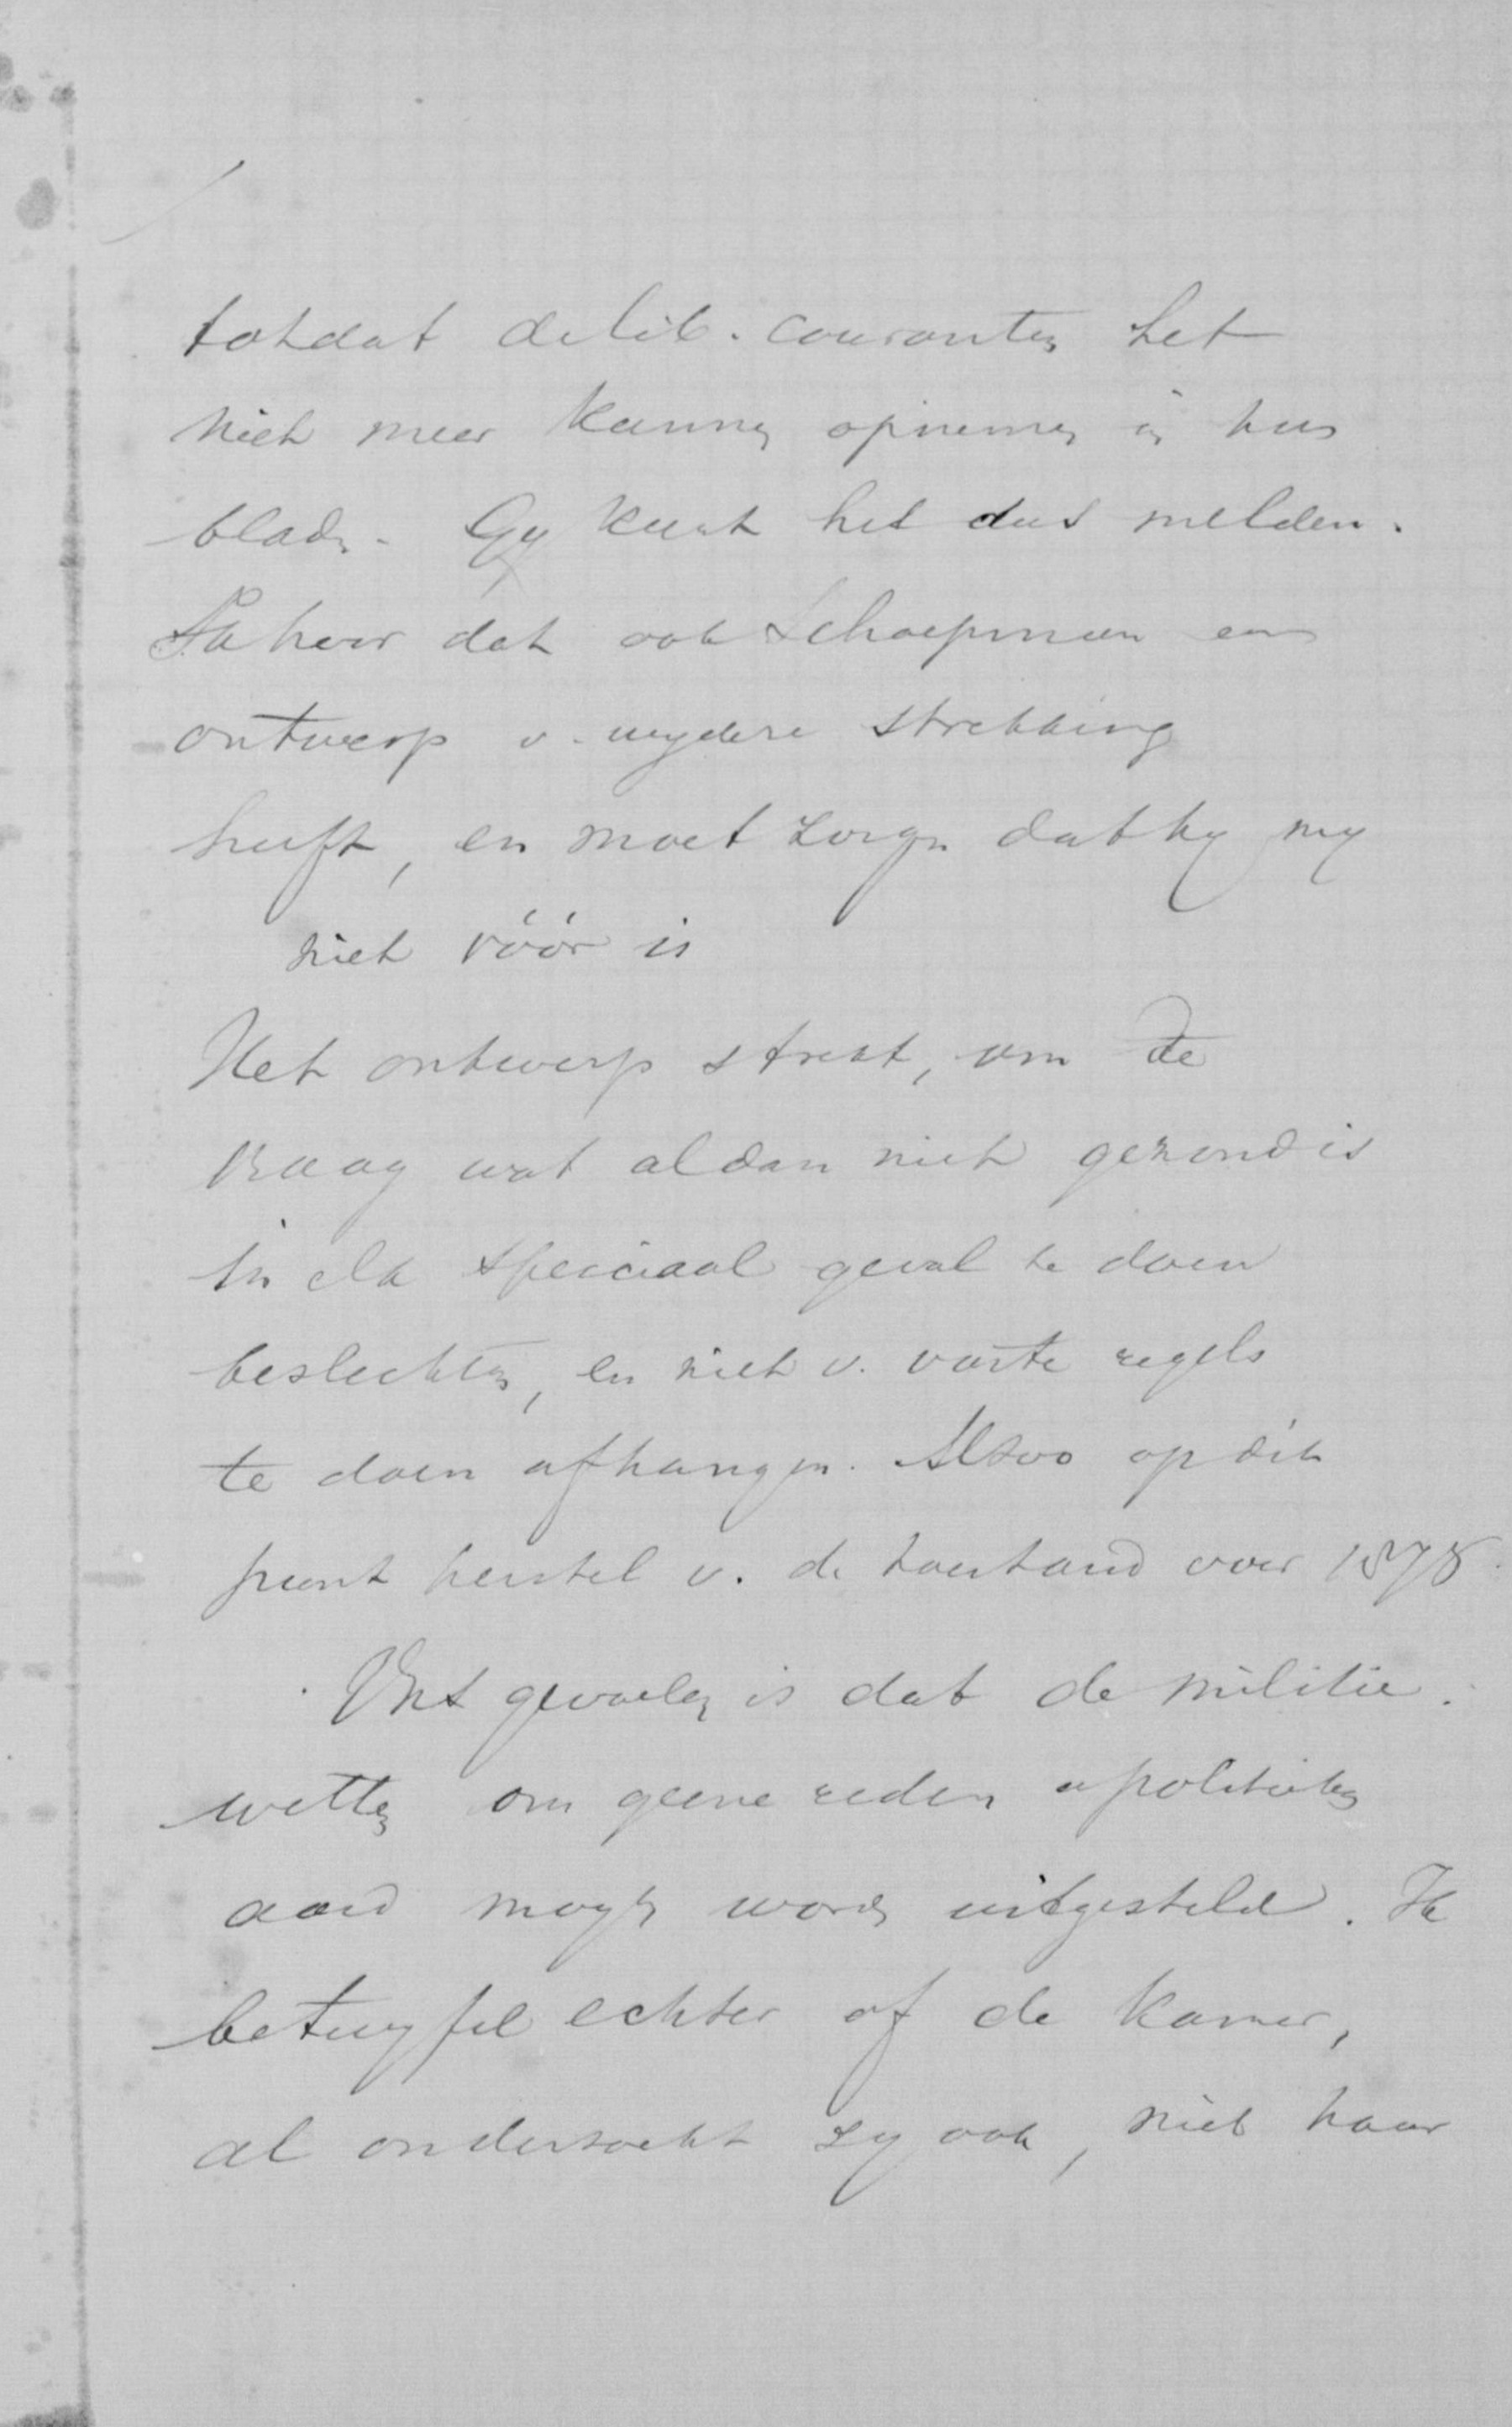 totdat de lib. couranten het
niet meer kunnen opnemen in hun
bladn. Gy kunt het dus melden.
Ik hoor dat ook Schaepman een
ontwerp v. wydere strekking
heeft, en moet zorgn dat hy my
niet vóór is
Het ontwerp strekt, om de
vraag wat al dan niet gezond is
in elk speciaal geval te doen
beslechten, en niet v. vaste regels
te doen afhangen. Alzoo op dit
punt herstel v. de toestand voor 1878.
Ons gevoelen is dat de militie.
wetten om geene reden v politieken
aard mogen worden uitgesteld. Ik
betwyfel echter of de Kamer,
al onderzoekt zy ook, niet haar